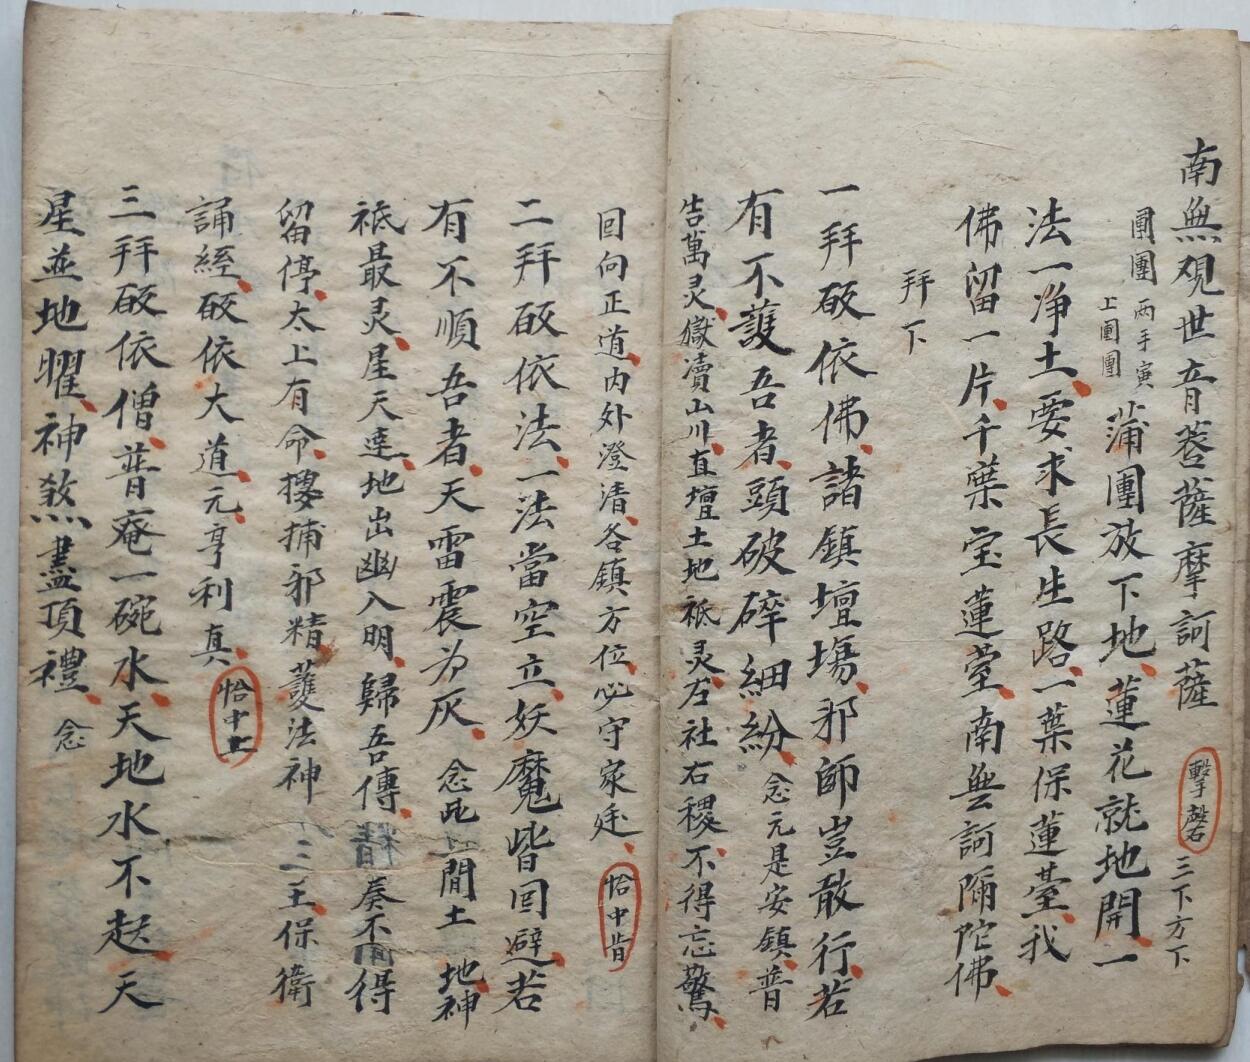 南無观世音菩薩摩訶薩 擊磬 三下方下
團團 两手寅上團團 蒲團放下地、蓮花就地開、一
法一净土、要求長生路、一葉保蓮臺、我
佛留一片、千葉宝蓮䑓、南無訶陀佛、
拜下
一拜皈依佛、諸鎮壇塲、邪師豈敢行、若
有不護吾者、頭破碎細紛、念元是安鎮、普
告萬灵、嶽瀆山川、直壇土地祇灵、左社右稷、不得忘驚、
回向正道、内外澄清、各鎮方位、必守家廷、恰中昔
二拜皈依法、一法當空立、妖魔皆回避、若
有不順吾者、天雷震为灰、念此 間土 地神
祇最灵、星天達、地出幽入明、歸吾傳、奏不得
留停、太上有命、摟捕邪精、護法神 三王、保衛
誦經、皈依大道、元亨利真、恰中
三拜皈依僧、普庵一碗水、天地水不起、天
星並地曜、神煞盡頂禮、念